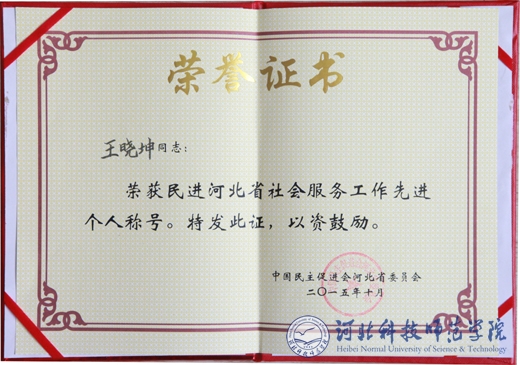 荣誉证书
王晓坤同志：
荣获民进河北省社会服务工作先进
个人称号。特发此证，以资鼓励。
中国民主促进会河北省委员会
二〇一五年十月
河北科技师范学院
Hebei Normal University of Science & Technology